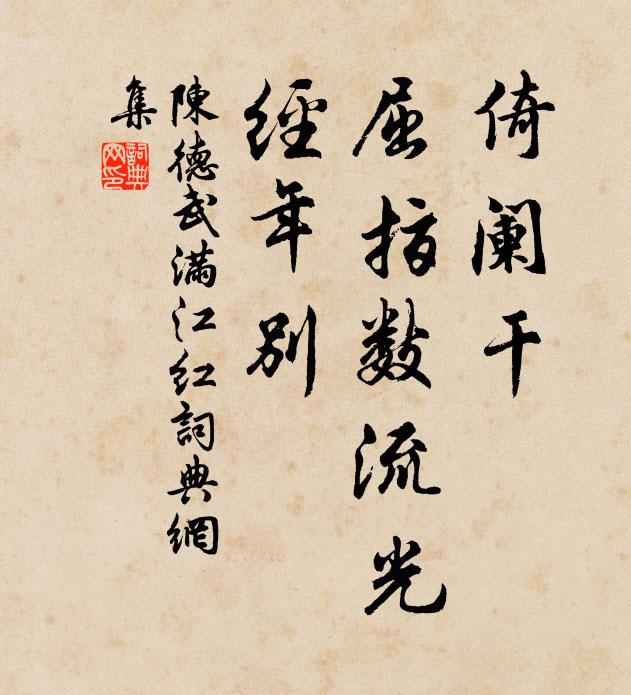 倚闌干
屈指數流光
經年別
陳德武滿江紅詞典網
集
詞典
网印